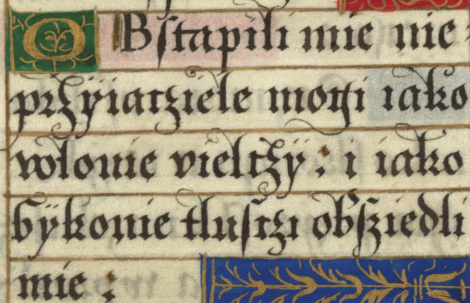 OBstapili mie nie:
przÿiatziele mogi iako
volouie vieltzÿ : i iako
bÿkouie tlustzi obsziedli
mie :